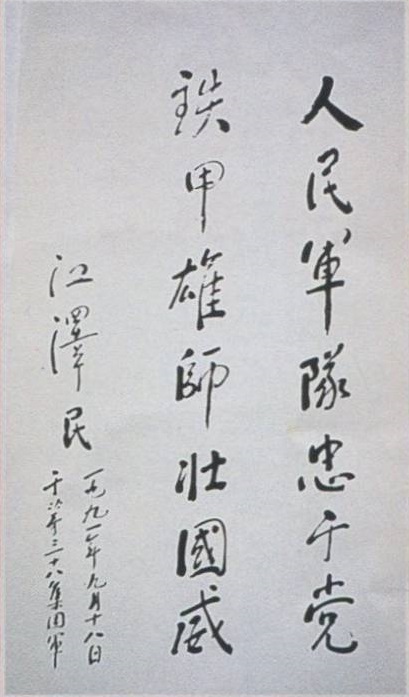 人民軍隊忠于党
鉄甲雄師壮國威
江澤民
一九九一年九月十八日
于三十八集团軍